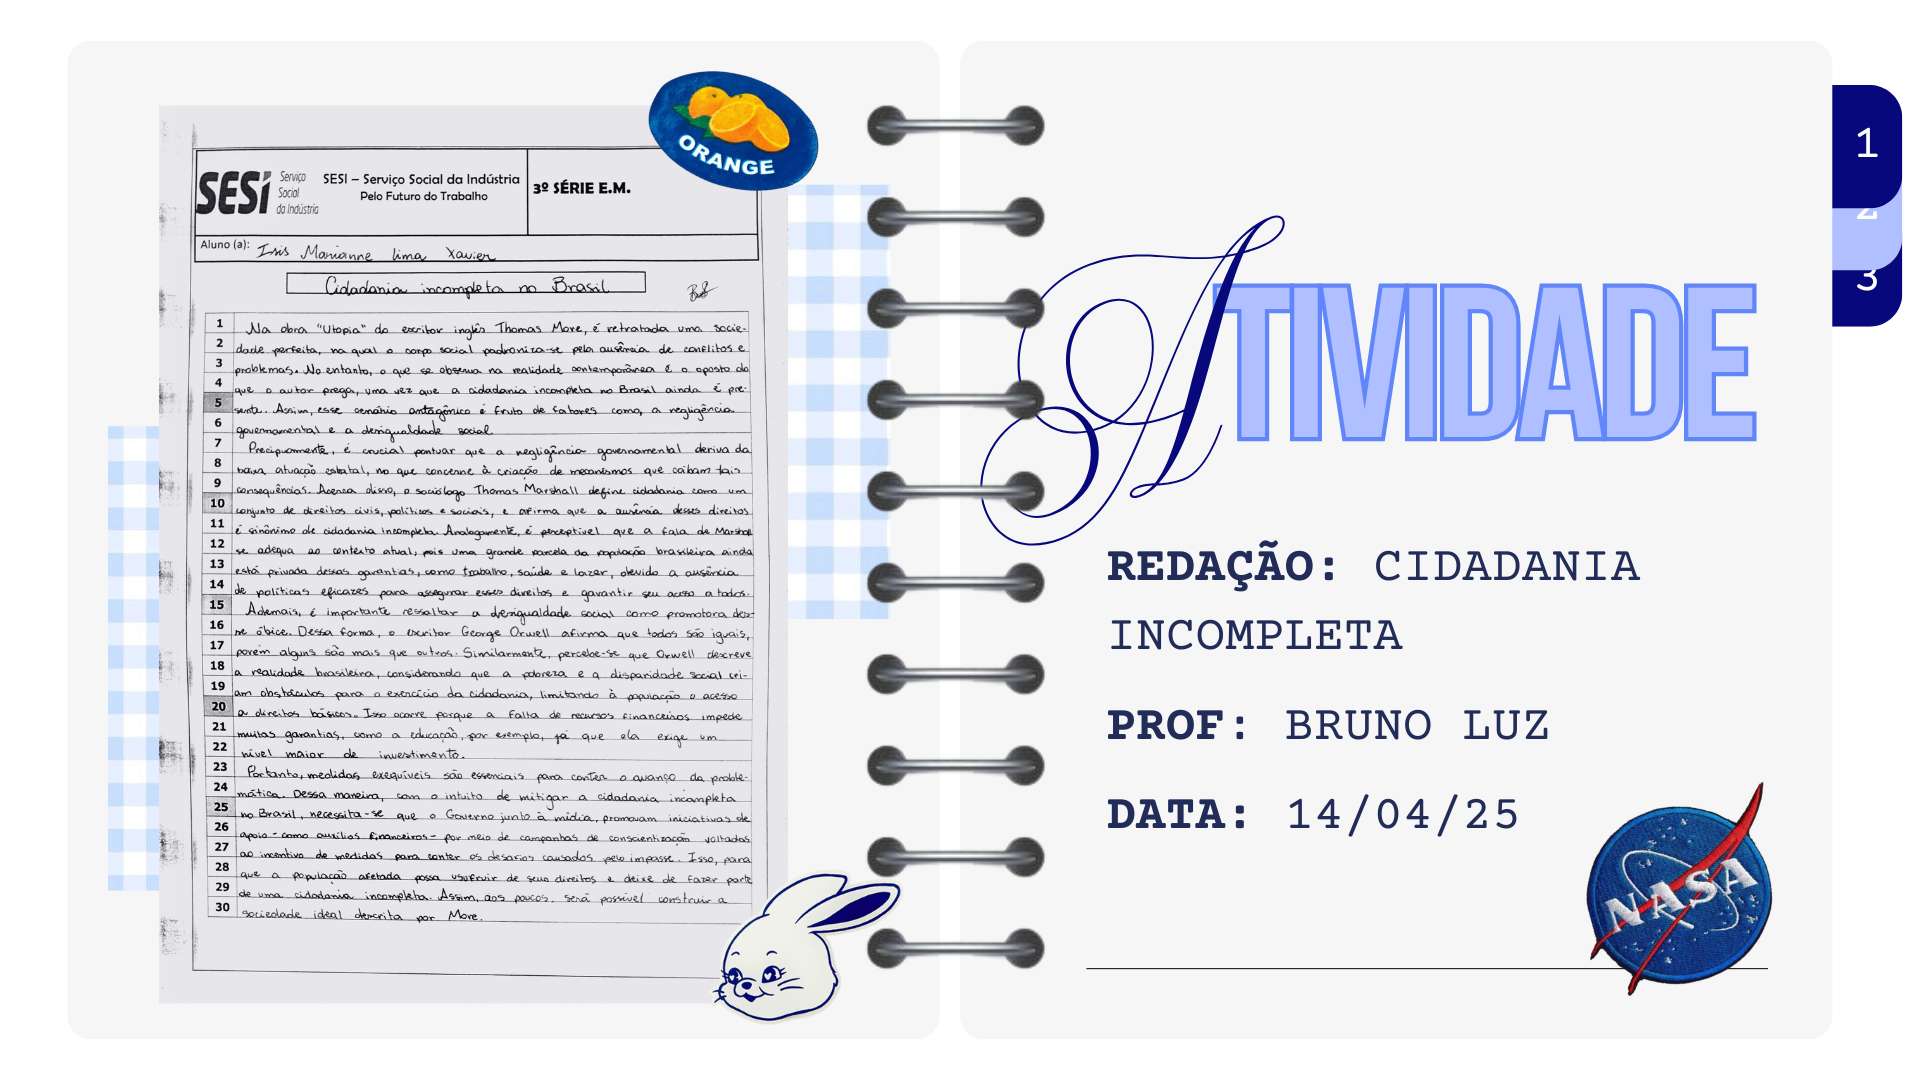 ORANGE
SESI Serviço Social da Indústria
SESI – Serviço Social da Indústria
Pelo Futuro do Trabalho
3º SÉRIE E.M.
Aluno (a): Isis Marianne lima Xavier
Cidadania incompleta no Brasil
1 Na obra "Utopia" do escritor inglês Thomas More, é retratada uma socie-
2 dade perfeita, na qual o corpo social padroniza-se pela ausência de conflitos e
3 problemas. No entanto, o que se observa na realidade contemporânea é o oposto do
4 que o autor prega, uma vez que a cidadania incompleta no Brasil ainda é pre-
5 sente. Assim, esse cenário antagônico é fruto de fatores como, a negligência
6 governamental e a desigualdade social.
7 Precipuamente, é crucial pontuar que a negligência governamental deriva da
8 baixa atuação estatal, no que concerne à criação de mecanismos que coibam tais
9 consequências. Acerca disso, o sociólogo Thomas Marshall define cidadania como um
10 conjunto de direitos civis, políticos e sociais, e afirma que a ausência desses direitos
11 é sinônimo de cidadania incompleta. Analogamente, é perceptível que a fala de Marshall
12 se adequa ao contexto atual, pois uma grande parcela da população brasileira ainda
13 está privada dessas garantias, como trabalho, saúde e lazer, devido a ausência
14 de políticas eficazes para assegurar esses direitos e garantir seu acesso a todos.
15 Ademais, é importante ressaltar a desigualdade social como promotora des-
16 se óbice. Dessa forma, o escritor George Orwell afirma que todos são iguais,
17 porém alguns são mais que outros. Similarmente, percebe-se que Orwell descreve
18 a realidade brasileira, considerando que a pobreza e a disparidade social cri-
19 am obstáculos para o exercício da cidadania, limitando à população o acesso
20 a direitos básicos. Isso ocorre porque a falta de recursos financeiros impede
21 muitas garantias, como a educação, por exemplo, já que ela exige um
22 nível maior de investimento.
23 Portanto, medidas exequíveis são essenciais para conter o avanço da proble-
24 mática. Dessa maneira, com o intuito de mitigar a cidadania incompleta
25 no Brasil, necessita-se que o Governo junto à mídia, promovam iniciativas de
26 apoio - como auxílios financeiros - por meio de campanhas de conscientização voltadas
27 ao incentivo de medidas para conter os desafios causados pelo impasse. Isso, para
28 que a população afetada possa usufruir de seus direitos e deixe de fazer parte
29 de uma cidadania incompleta. Assim, aos poucos, será possível construir a
30 sociedade ideal descrita por More.
ATIVIDADE
REDAÇÃO: CIDADANIA
INCOMPLETA
PROF: BRUNO LUZ
DATA: 14/04/25
NASA
1
2
3